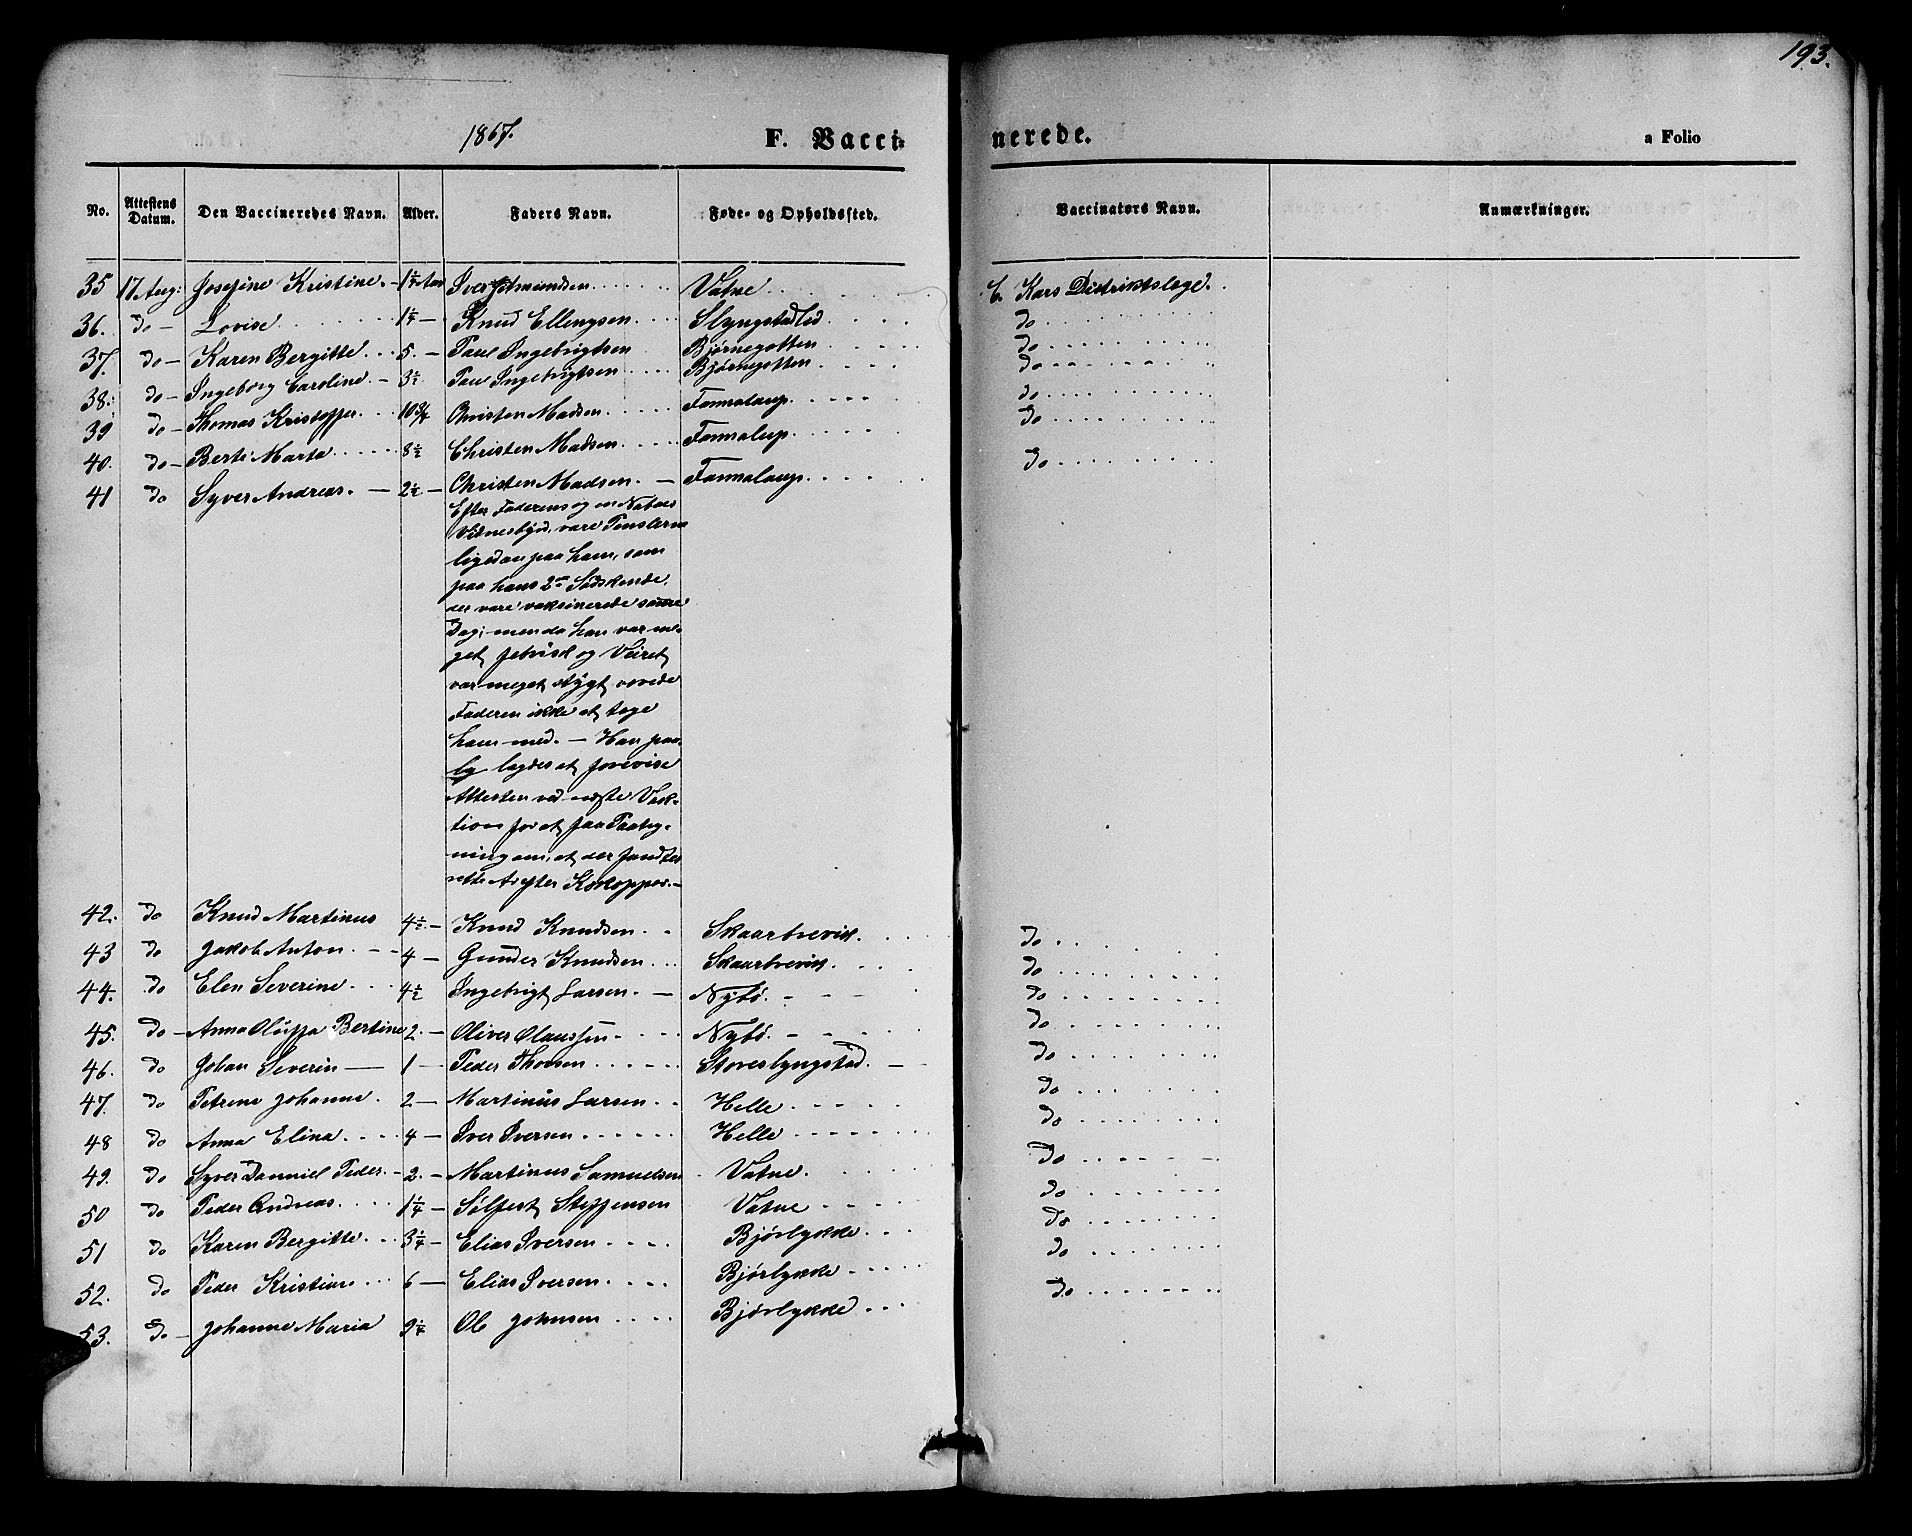 193.
1867. F. Vacci-nerede. a Folio
No. Attestens Datum. Den Vaccineredes Navn. Alder. Faders Navn. Føde- og Opholdssted. Vaccinators Navn. Anmærkninger.
35 17 Aug: Josefine Kristine. 1 1/4 Aar Iver Vatne C. Kars Distriktslæge.
36. do Lovise 1 1/4 Knud Ellingsen Slyngstadlid do
37. do Karen Bergitte 5. Paul Ingebrigtsen Bjørnegotten do
38. do Ingeborg Caroline 3 1/2 Paul Ingebrigtsen Bjørnegotten do
39 do Thomas Kristoffer 10 3/4 Christen Madsen do
40. do Berte Marta 8 1/2 Christen Madsen do
41 do Syver Andreas. 2 1/2 Christen Madsen. do
Efter Faderens og en Naboes
Vidnesbyrd, vare
ligedan paa ham, som
paa hans 2de Sødskende,
der vare vaksinerede samme
Dag; men da han var me-
get og Veiret
var meget stygt, vovede
Faderen ikke at tage
ham med. — Han paa-
lagdes at forevise
Attesten ved næste Vak-
tion for at faa Paateg-
ning om, at der fandtes
rette Ar efter Kokopper.
42. do Knud Martinus 4 1/2 Knud Knudsen Skaarbrevik. do
43 do Jakob Anton 4 Gunder Knudsen Skaarbrevik. do
44. do Elen Severine 4 1/2 Ingebrigt Larsen. Nybø. do
45. do Anna Oluffa Bertine 2. Oliver Olaussen Nybø. do
46. do Johan Severin 1 Peder Thorsen Storeslyngstad. do
47. do Petrine Johanne. 2 Martinus Larsen Helle do
48 do Anna Elina 4 Iver Iversen Helle do
49. do Syver Danniel Peder. 2. Martinus Samuelsen Vatne. do
50 do Peder Andreas. 1 1/4 Sølfest Steffensen Vatne do
51 do Karen Bergitte 3 1/4 Elias Iversen Bjørlykke do
52. do Peder Kristian 6 Elias Iversen Bjørlykke do
53. do Johanne Maria 9 1/4 Ole Johnsen Bjørlykke do